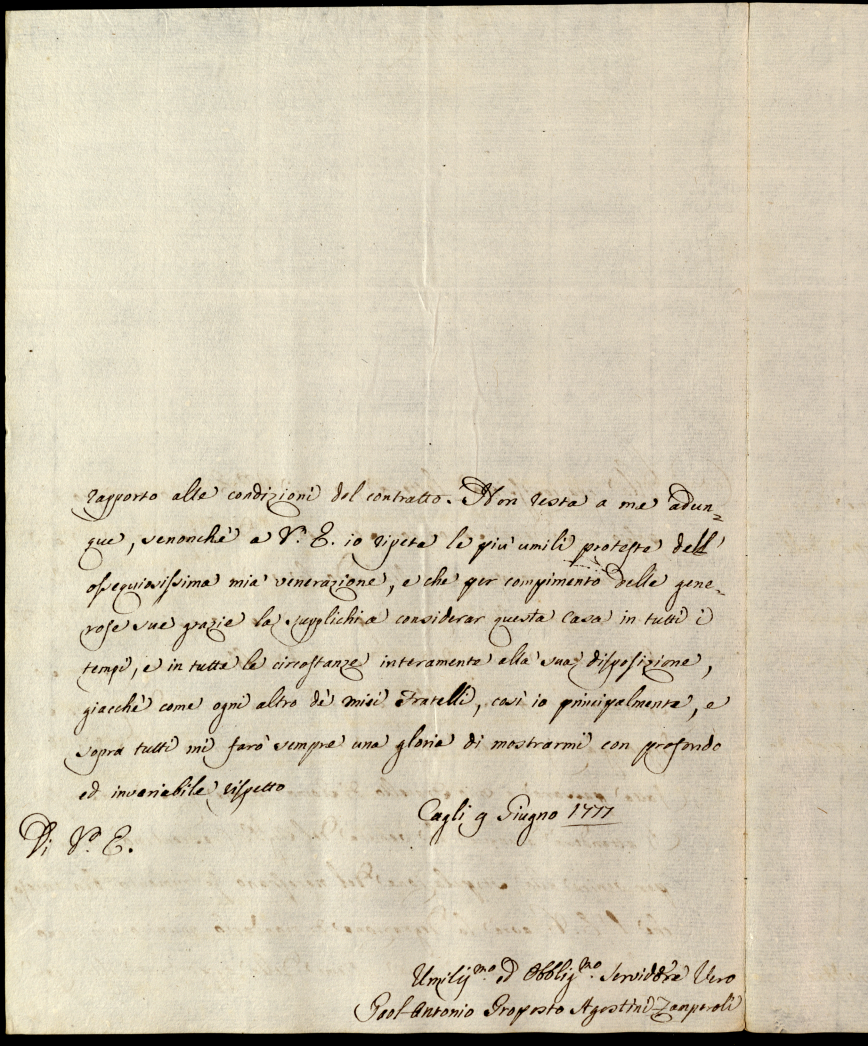 rapporto alle condizioni del contratto. Non resta a me adun=
que, senonchè a V. E. io ripeta le più umili proteste dell'
ossequiosissima mia venerazione, e che per compimento delle gene=
rose sue grazie la supplichi a considerar questa Casa in tutti i
tempi, e in tutte le circostanze interamente alla sua disposizione,
giacchè come ogni altro de' miei Fratelli, così io principalmente, e
sopra tutti mi farò sempre una gloria di mostrarmi con profondo
ed invariabile rispetto
Cagli 9 Giugno 1777
Di V. E.
Umilij.mo ed Obblig.mo Servidore Vero
Antonio Proposto Agostini Zamperoli